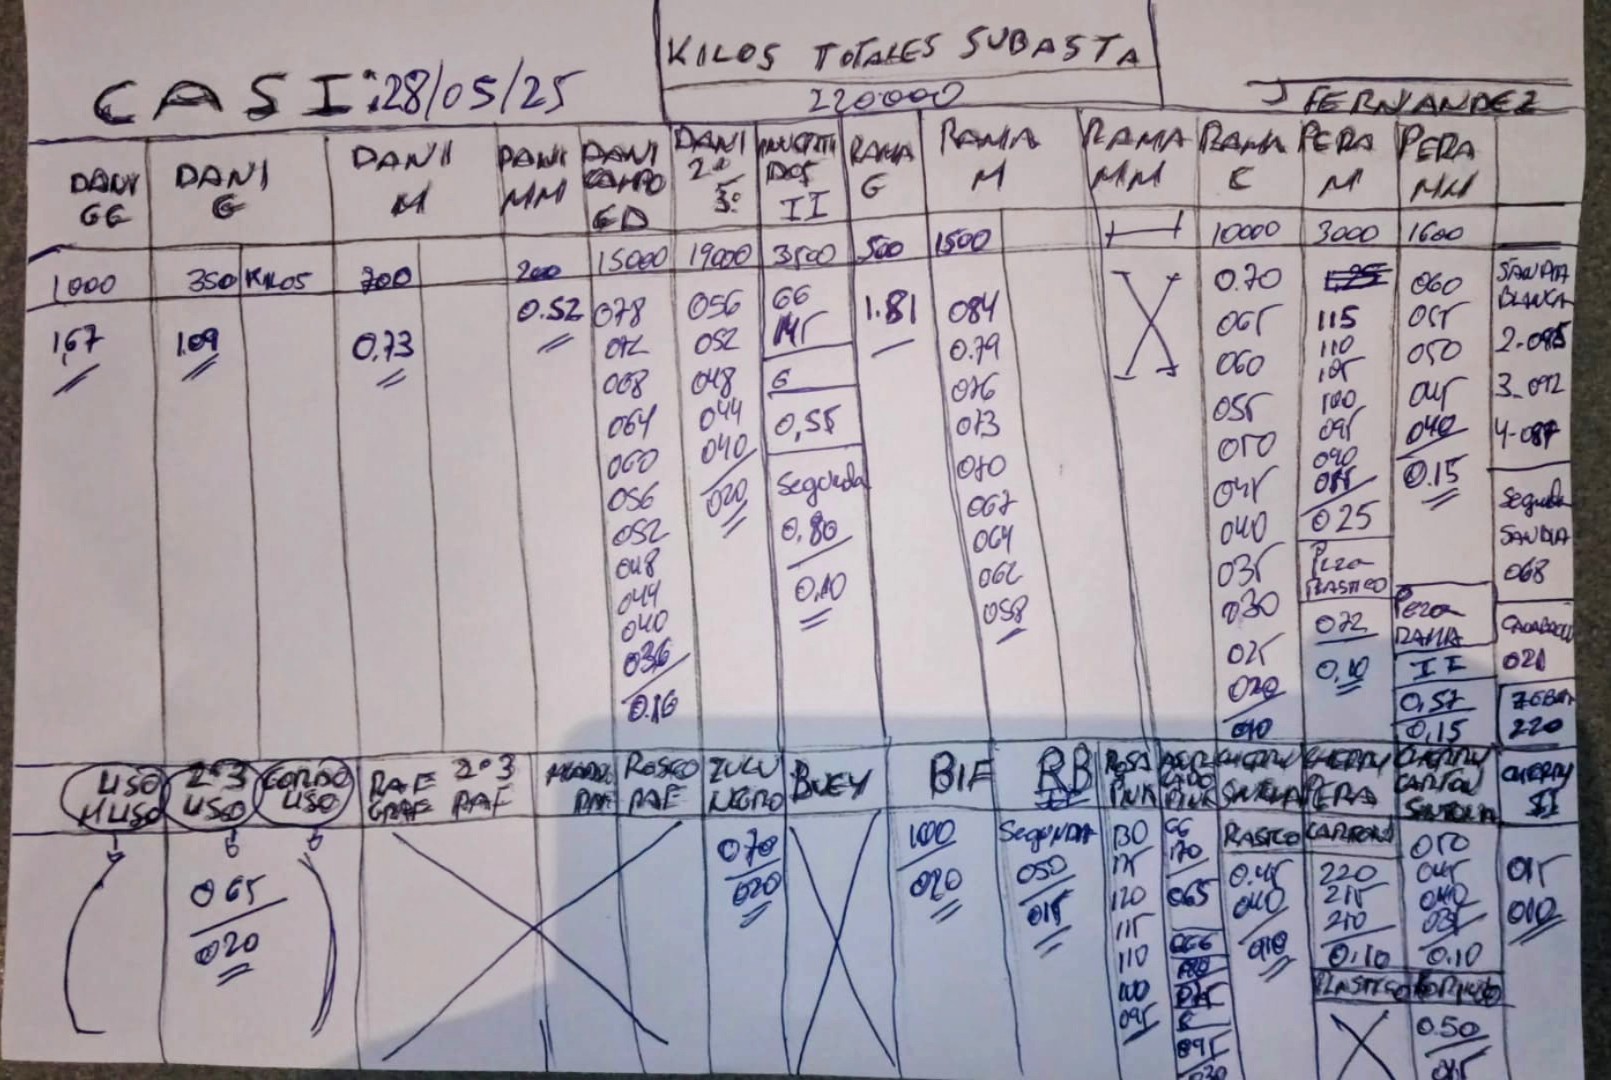 CASI: 28/05/25
KILOS TOTALES SUBASTA
220000
J FERNANDEZ
DANI GG
DANI G
DANI M
DANI MM
DANI CAMPO GD
DANI 2º 3º
II
RAMA G
RAMA M
RAMA MM
RAMA C
PERA M
PERA MM
1000
350 KILOS
700
200
15000
19000
3500
500
1500
10000
3000
1600
1,67
1.09
0,73
0.52
078
072
068
064
060
056
052
048
044
040
036
0.16
056
052
048
044
040
020
GG
G
0,55
Segunda
0,80
0,10
1.81
084
0.79
076
073
070
067
064
062
058
0.70
065
060
055
050
045
040
035
030
025
020
010
115
110
105
100
095
090
025
Pera
PLASTICO
072
0,10
060
055
050
045
040
0.15
Pera
RAMA
II
0,57
0,15
SANDIA
BLANCA
2-095
3-092
4-087
Segunda
SANDIA
068
021
220
LISO
2º3
LISO
GORDO
LISO
RAF
2º3
RAF
ROSCO
RAF
ZULU
NEGRO
BUEY
BIF
RB
ROSA
PINK
PINK
CHERRY
CHERRY
PERA
CHERRY
CARTON
CHERRY
II
065
020
070
020
100
020
Segunda
050
015
130
125
120
115
110
100
095
GG
170
065
095
030
0.45
040
010
CARTON
220
215
210
0.10
PLASTICO
050
045
040
035
0.10
0.50
015
015
010